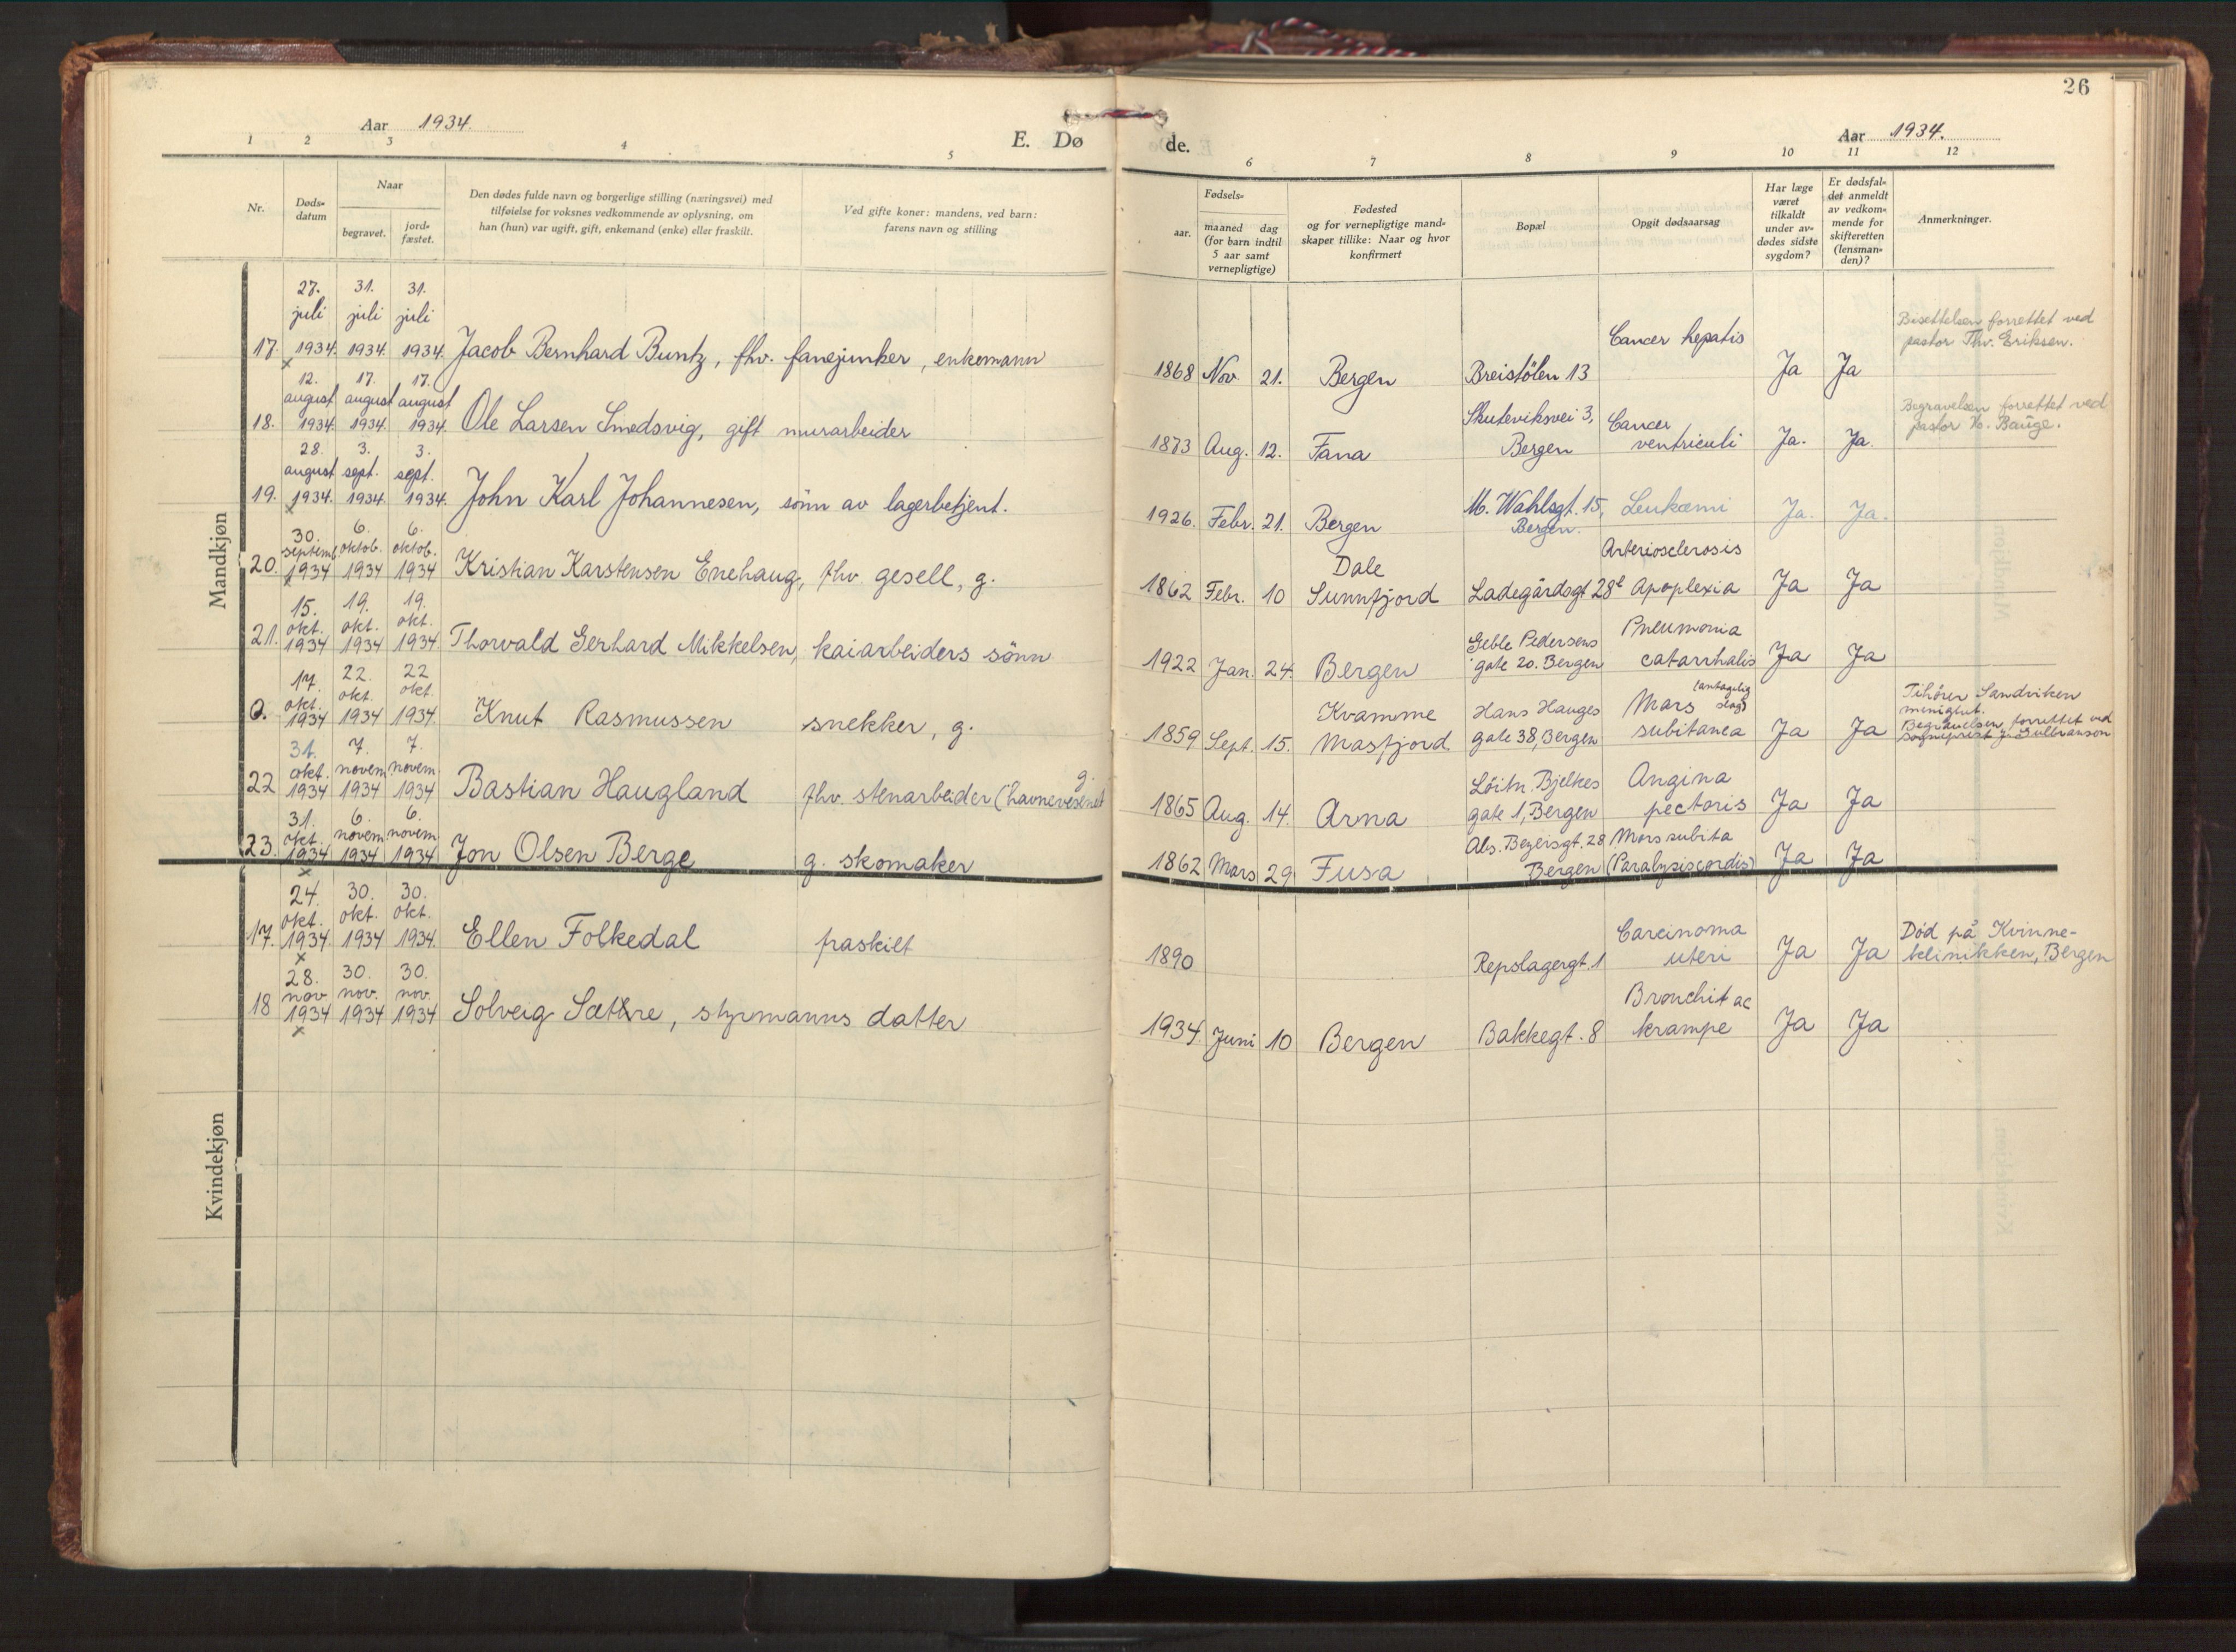 26
Aar 1934.
E. Dø
de.
Aar 1934.
1 2 3 4 5
6 7 8 9 10 11 12
Nr.
Døds-
datum
Naar
begravet.
jord-
fæstet.
Den dødes fulde navn og borgerlige stilling (næringsvei) med
tilføielse for voksnes vedkommende av oplysning, om
han (hun) var ugift, gift, enkemand (enke) eller fraskilt.
Ved gifte koner: mandens, ved barn:
farens navn og stilling
Fødsels-
aar.
maaned dag
(for barn indtil
5 aar samt
vernepligtige)
Fødested
og for vernepligtige mand-
skaper tillike: Naar og hvor
konfirmert
Bopæl
Opgit dødsaarsag
Har læge
været
tilkaldt
under av-
dødes sidste
sygdom?
Er dødsfal-
det anmeldt
av vedkom-
mende for
skifteretten
(lensman-
den)?
Anmerkninger.
Mandkjøn
27. 31. 31.
juli juli juli
17. 1934. 1934. 1934. Jacob Bernhard Buntz, fhv. fanejunker, enkemann
x
1868 Nov. 21. Bergen Breistölen 13 Cancer hepatis Ja Ja
Bisettelsen forrettet ved
pastor Thv. Eriksen.
12. 17. 17.
august august august
18. 1934. 1934. 1934. Ole Larsen Smedsvig, gift murarbeider
1873 Aug. 12. Fana
Skuteviksvei 3,
Bergen
Cancer
ventriculi
Ja. Ja.
Begravelsen forrettet ved
pastor K. Bauge.
28. 3. 3.
august sept. sept.
19. 1934. 1934. 1934. John Karl Johannesen, sönn av lagerbetjent.
x
1926. Febr. 21. Bergen
M. Wahlsgt. 15,
Bergen.
Leukæmi Ja. Ja.
30. 6. 6.
septemb. oktob. oktob.
20. 1934 1934 1934 Kristian Karstensen Enehaug, fhv. gesell, g.
x
1862 Febr. 10
Dale
Sunnfjord
Ladegårdsgt 28
Arteriosclerosis
Apoplexia
Ja Ja
15. 19. 19.
okt. okt. okt.
21. 1934 1934 1934 Thorvald Gerhard Mikkelsen, kaiarbeiders sönn
1922 Jan. 24. Bergen
Geble Pedersens
gate 20. Bergen
Pneumonia
catarrhalis
Ja Ja
17. 22. 22
okt. okt. okt.
0. 1934 1934 1934. Knut Rasmussen snekker, g.
1859 Sept. 15.
Kvamme
Masfjord.
Hans Hauges
gate 38, Bergen
Mors (antagelig
slag)
subitanea
Ja Ja
Tihörer Sandviken
menighet.
Begravelsen forrettet ved
sogneprest J. Gulbranson
31. 7. 7.
okt. novem. novem.
22 1934 1934 1934 Bastian Haugland fhv. stenarbeider (havnevesenet g.
1865 Aug. 14. Arna
Löitn. Bjelkes
gate 1, Bergen
Angina
pectoris
Ja Ja
31. 6. 6.
okt. novem. novem.
23. 1934 1934 1934 Jon Olsen Berge g. skomaker
x
1862 Mars 29 Fusa
Abs. Beyersgt. 28
Bergen
Mors subita
(Paralysis cordis)
Ja Ja
Kvindekjøn
24. 30. 30.
okt. okt. okt.
17. 1934 1934 1934. Ellen Folkedal fraskilt
x
1890 Repslagergt. 1
Carcinoma
uteri
Ja Ja
Död på Kvinne-
klinikken, Bergen
28. 30. 30.
nov. nov. nov.
18 1934 1934 1934 Solveig Sættre, styrmanns datter
x
1934. Juni 10 Bergen Bakkegt. 8
Bronchit ac
krampe
Ja Ja